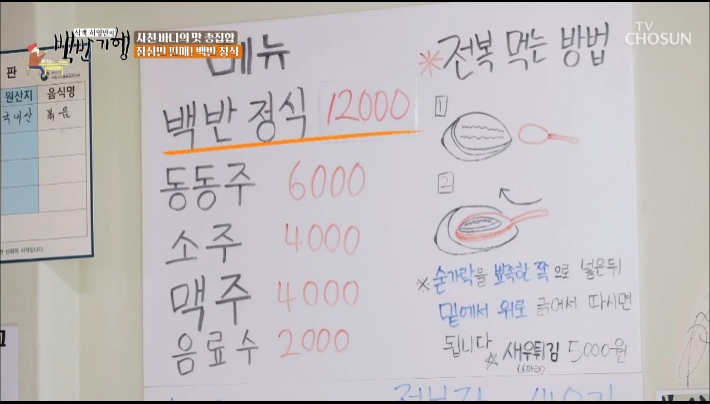 식객 허영만의
백반기행
서천 바다의 맛 총집합
점심만 판매! 백반 정식
TV
CHOSUN
판
원산지 음식명
국내산 볶음
메뉴
백반정식 12000
동동주 6000
소주 4000
맥주 4000
음료수 2000
*전복 먹는 방법
1
2
※숟가락을 뾰족한 쪽으로 넣은뒤
밑에서 위로 긁어서 따시면
됩니다
☆새우튀김 5000원
(6마리)